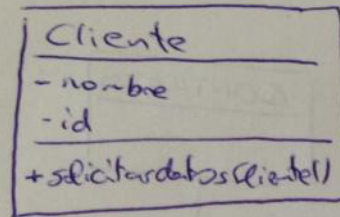 Cliente
- nombre
- id
+ solicitardatosCliente()